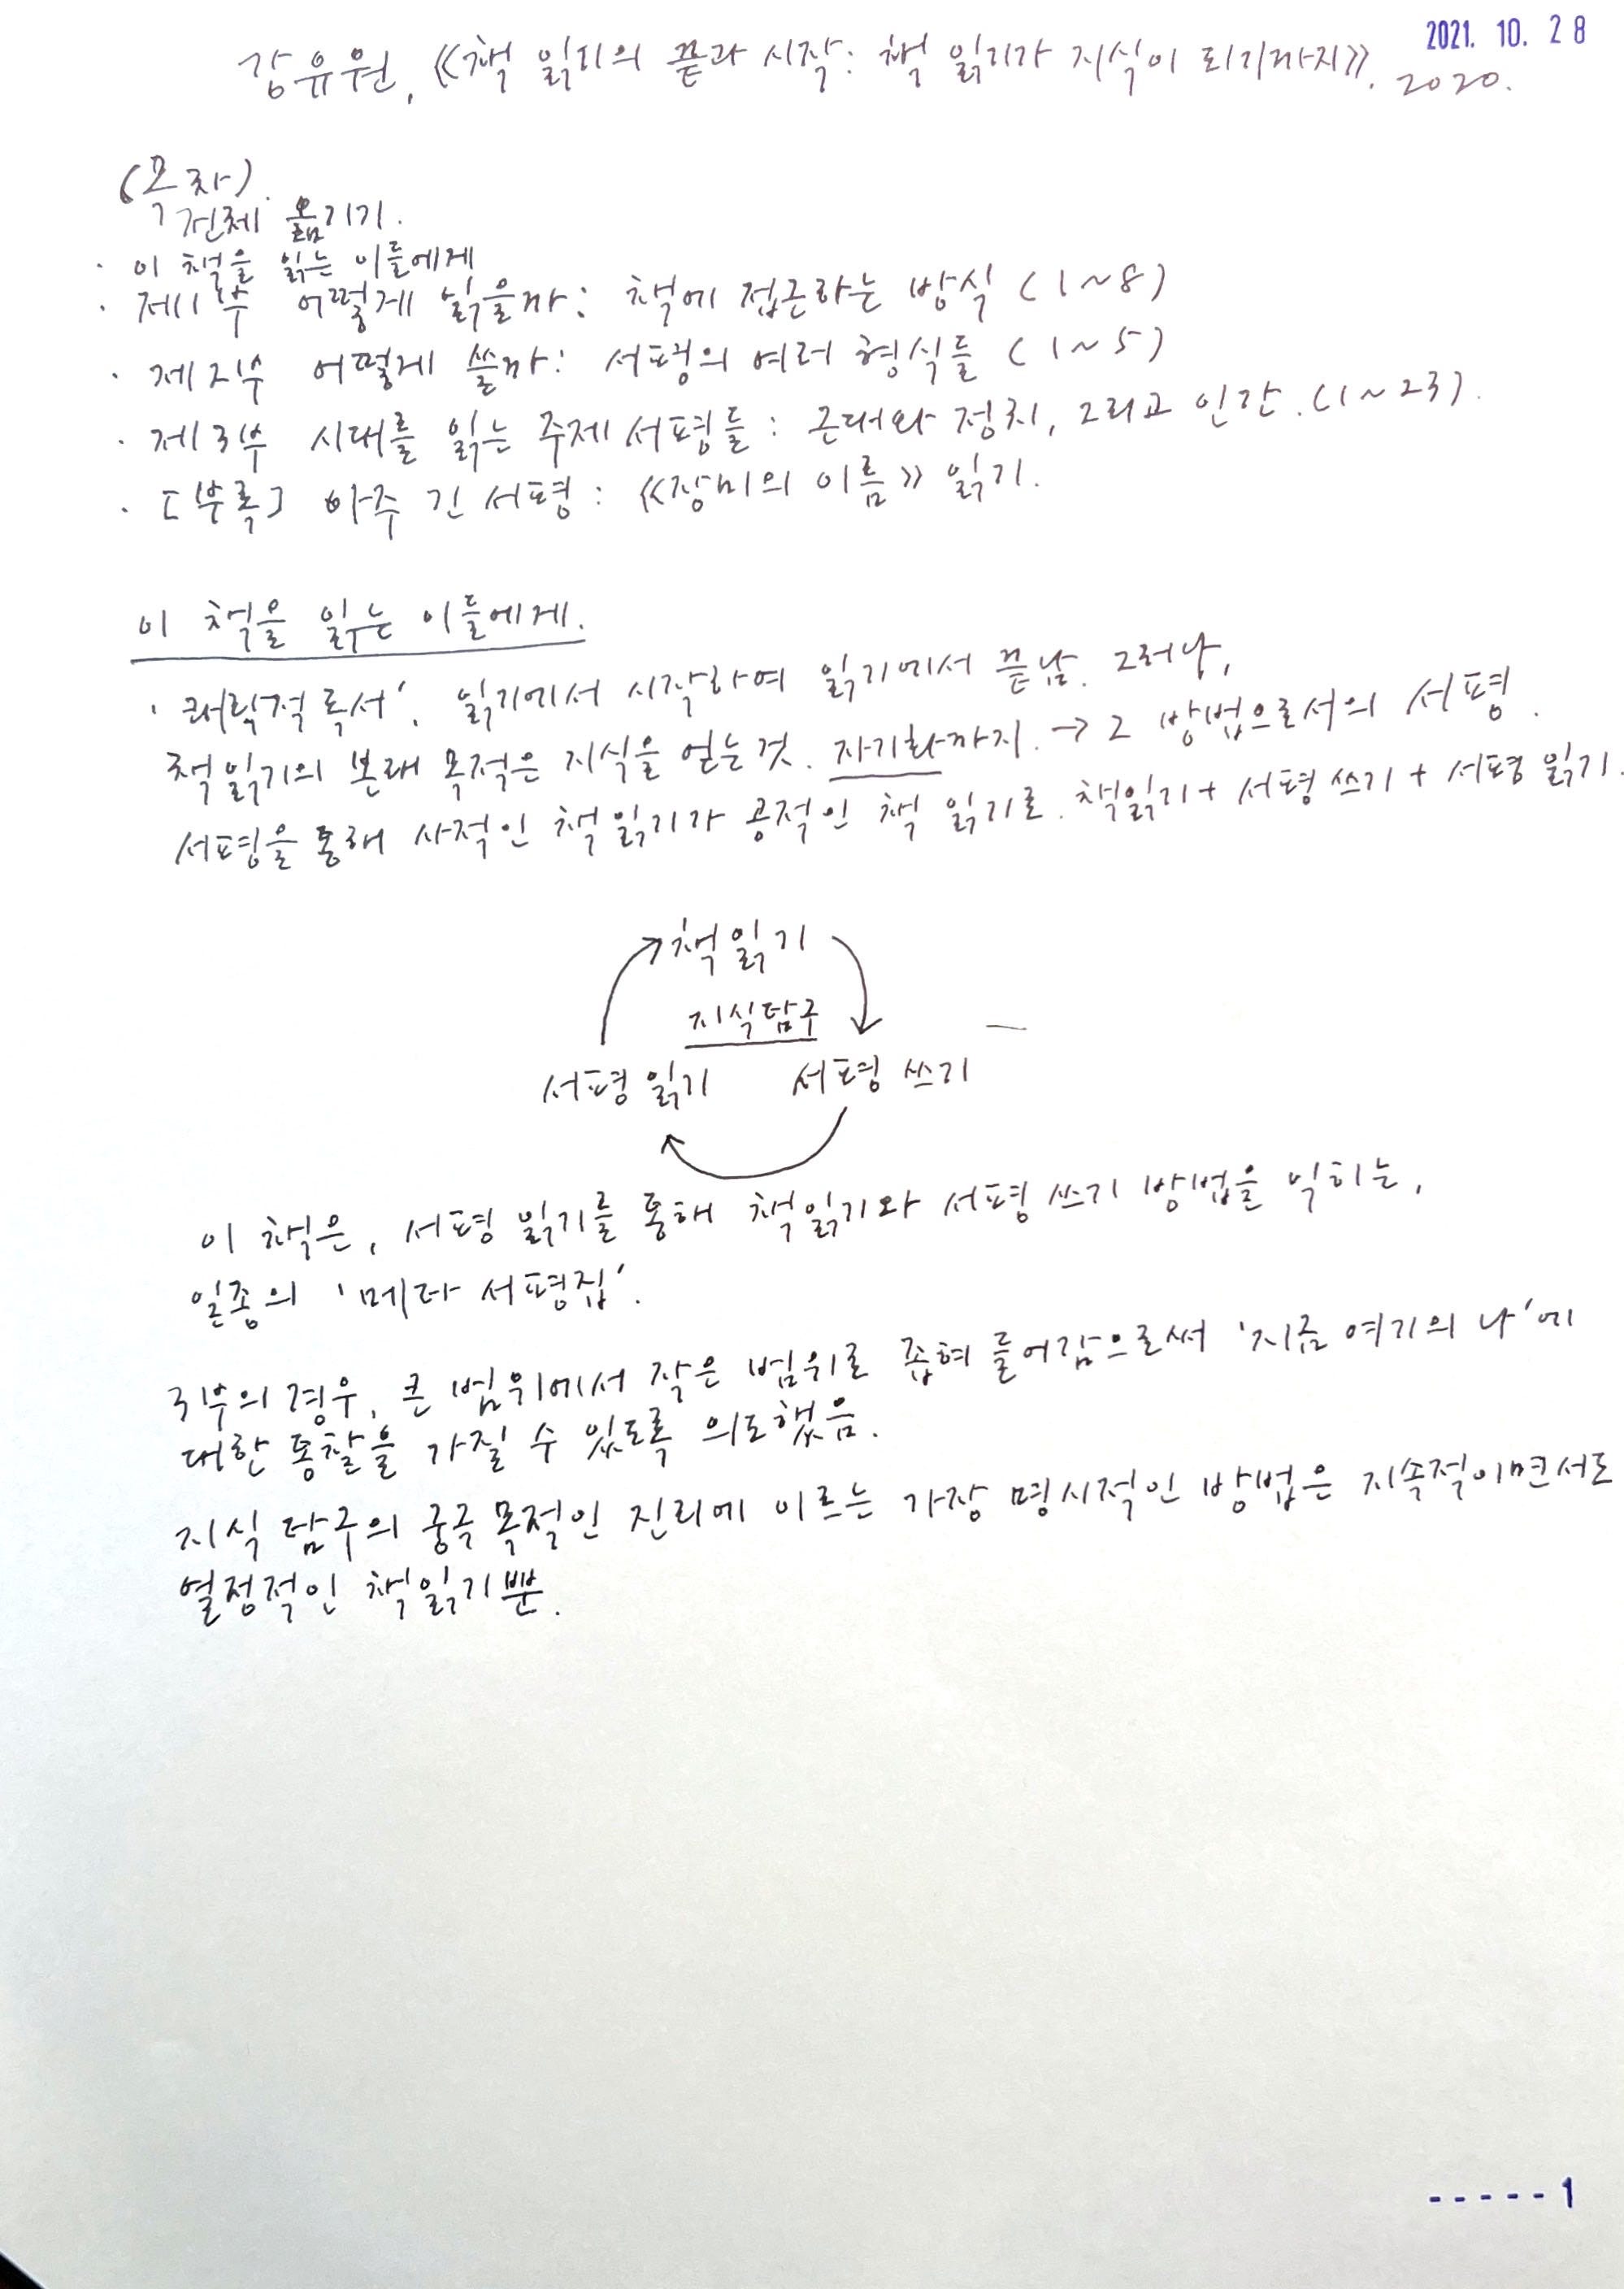 2021. 10. 28
강유원, 《책 읽기의 끝과 시작: 책 읽기가 지식이 되기까지》, 2020.
(목차).
전체 옮기기.
· 이 책을 읽는 이들에게
· 제1부 어떻게 읽을까: 책에 접근하는 방식 (1~8)
· 제2부 어떻게 쓸까: 서평의 여러 형식들 (1~5)
· 제3부 시대를 읽는 주제서평들: 근대와 정치, 그리고 인간. (1~23).
· [부록] 아주 긴 서평: 《장미의 이름》 읽기.
이 책을 읽는 이들에게.
'쾌락적 독서'. 읽기에서 시작하여 읽기에서 끝남. 그러나,
책읽기의 본래 목적은 지식을 얻는 것. 자기화까지. → 그 방법으로서의 서평.
서평을 통해 사적인 책읽기가 공적인 책 읽기로. 책읽기 + 서평 쓰기 + 서평 읽기.
책 읽기
지식탐구
서평 읽기 서평 쓰기
이 책은, 서평 읽기를 통해 책읽기와 서평 쓰기 방법을 익히는,
일종의 '메타 서평집'.
3부의 경우, 큰 범위에서 작은 범위로 좁혀 들어감으로써 '지금 여기의 나'에
대한 통찰을 가질 수 있도록 의도했음.
지식 탐구의 궁극 목적인 진리에 이르는 가장 명시적인 방법은 지속적이면서도
열정적인 책읽기뿐.
-----1